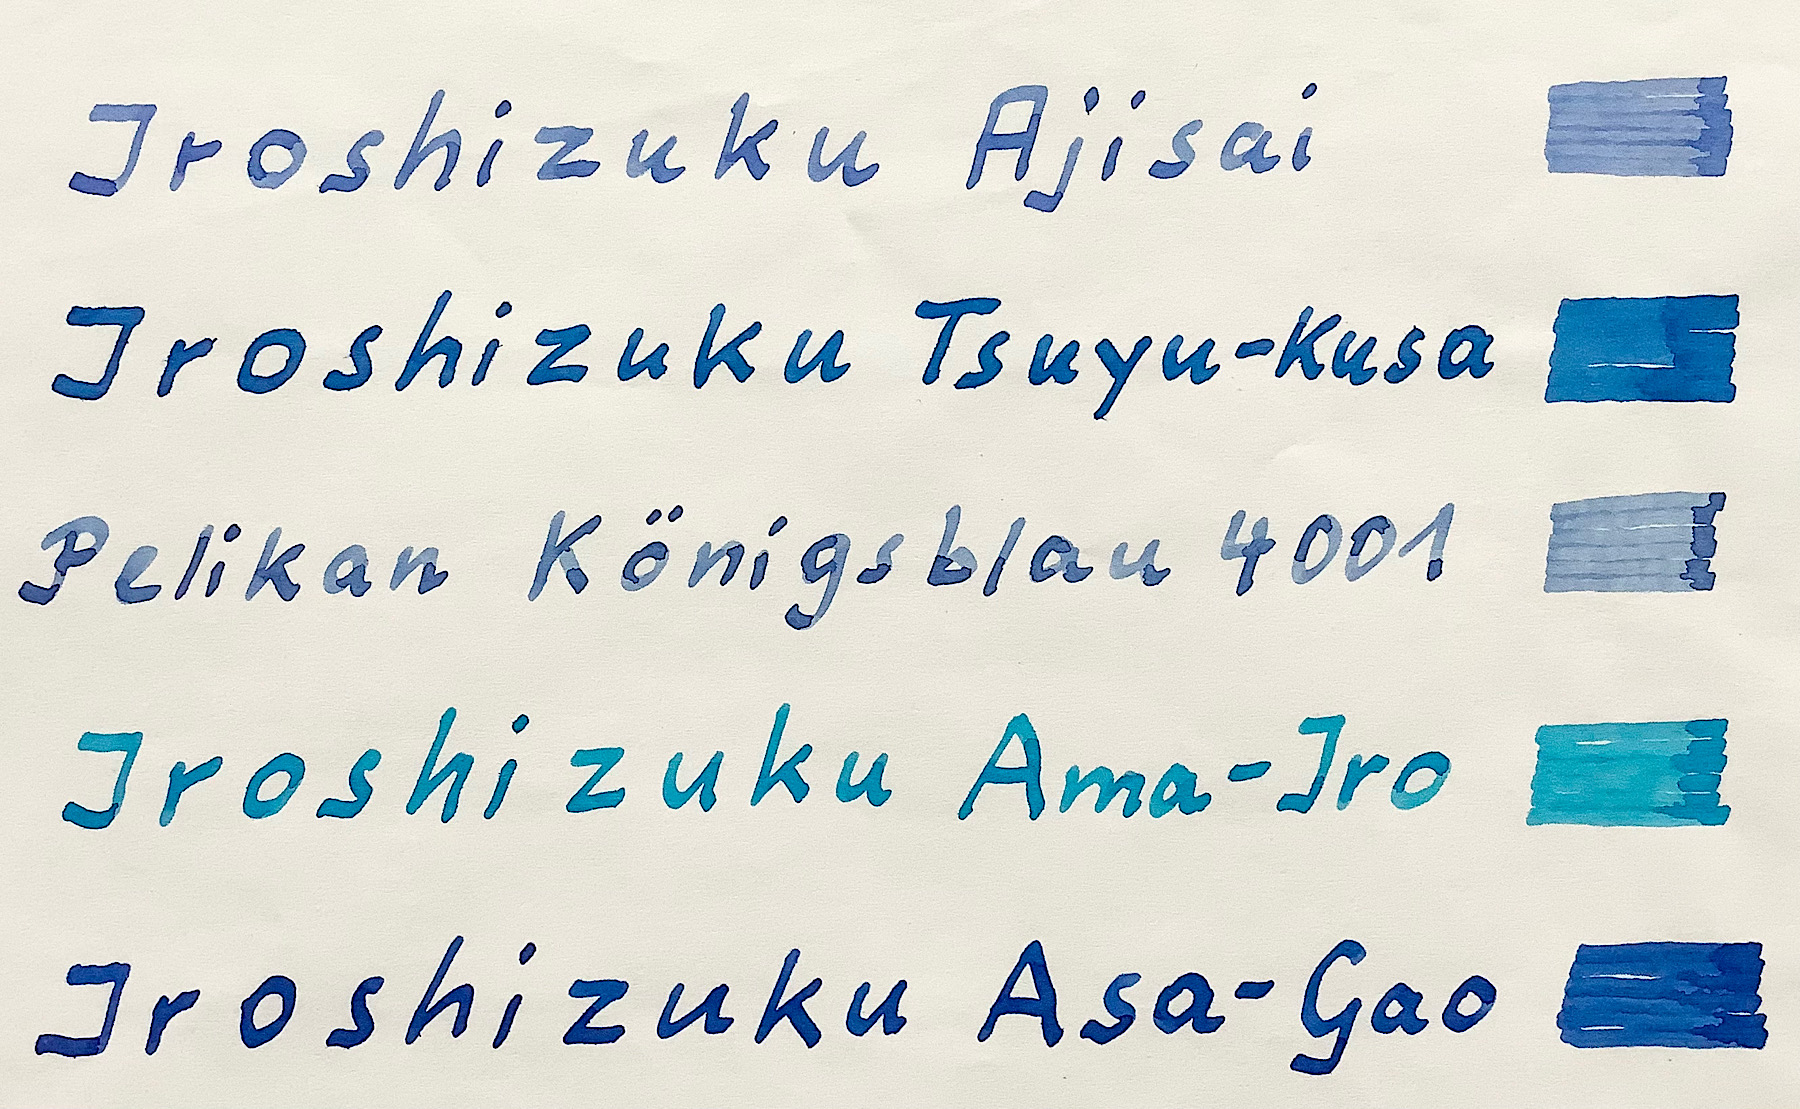 Iroshizuku Ajisai
Iroshizuku Tsuyu-Kusa
Pelikan Königsblau 4001
Iroshizuku Ama-Iro
Iroshizuku Asa-Gao